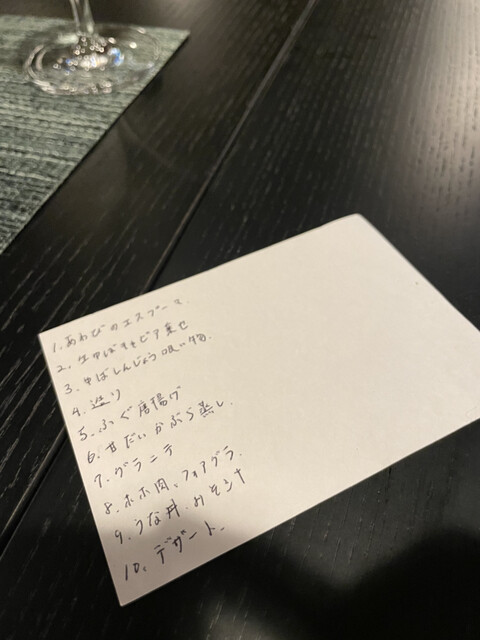 1. あわびのエスプーマ.
2. 生ゆばキャビア乗せ
3. ゆばしんじょう吸い物.
4. 造り
5. ふぐ唐揚げ
6. 甘だいかぶら蒸し.
7. グラニテ
8. ホホ肉. フォアグラ.
9. うな丼. みそシャ
10. デザート.